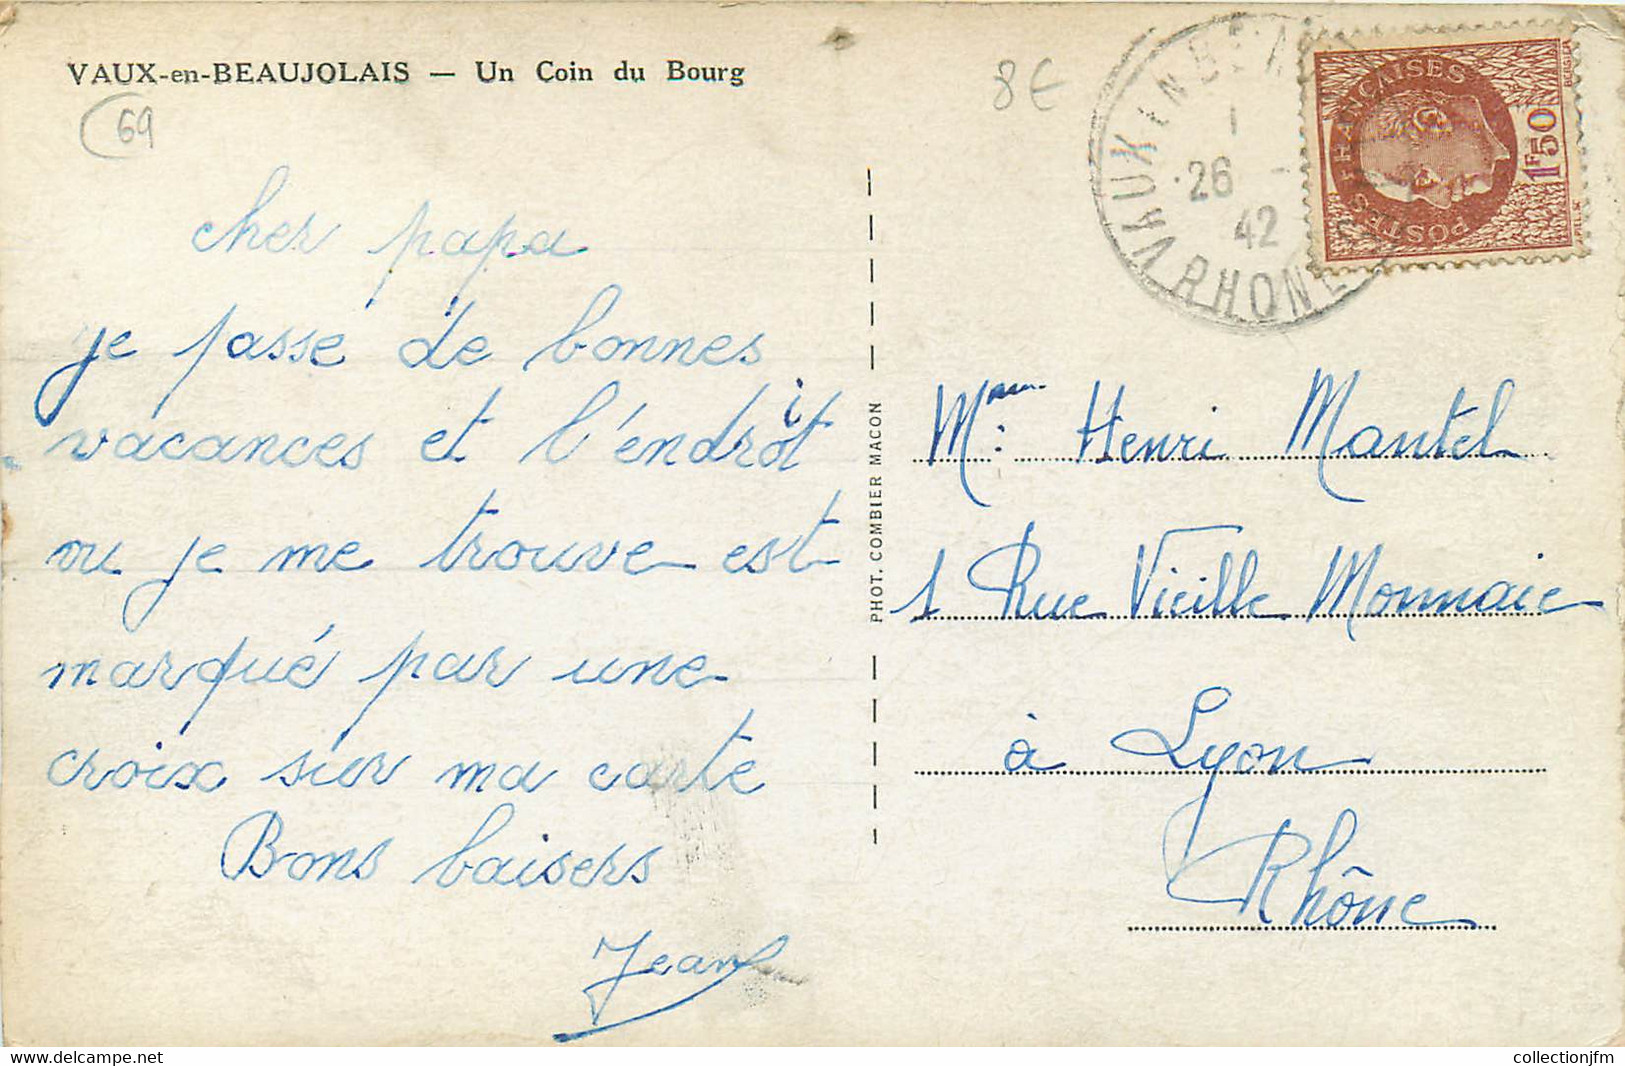 VAUX-en-BEAUJOLAIS — Un Coin du Bourg
69
8€
cher papa
je passe de bonnes
vacances et l'endroit
ou je me trouve est
marqué par une
croix sur ma carte
Bons baisers
Jean
PHOT. COMBIER MACON
26
42
RHONE
POSTES FRANÇAISES
1F50
Henri Mantel
1 Rue Vieille Monnaie
à Lyon
Rhône
collectionjfm